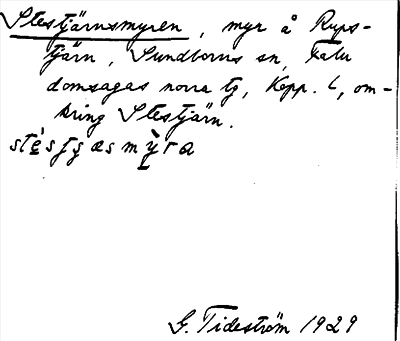 Stestjärnsmyren, myr å Rups-
tjärn, Sundborns sn, Falu
domsagas norra tg, Kopp. L, om-
kring Stestjärn.
stésʈʂæsmỳra
G. Tideström 1929